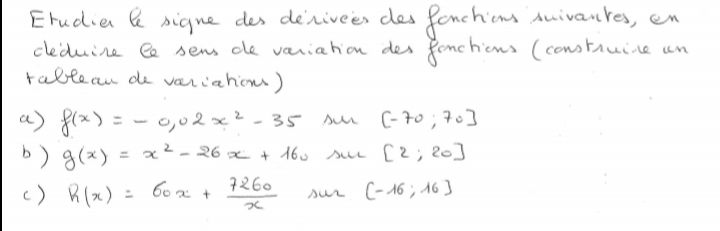 Etudier le signe des dérivées des fonctions suivantes, en
déduire le sens de variation des fonctions (construire un
tableau de variations)
a) f(x) = - 0,02x² - 35 sur [-70 ; 70]
b) g(x) = x² - 26x + 160 sur [2 ; 20]
c) h(x) = 60x + 7260/x sur [-16 ; 16]